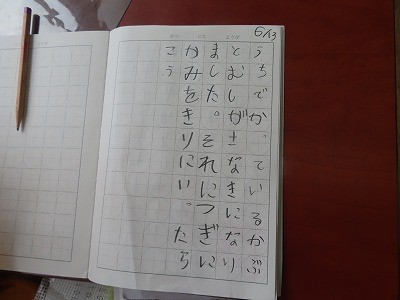 6/13
うちでか、ているかぶ
とむしがさなきになり
ました。それにつぎに
かみをきりにい。たら
こう